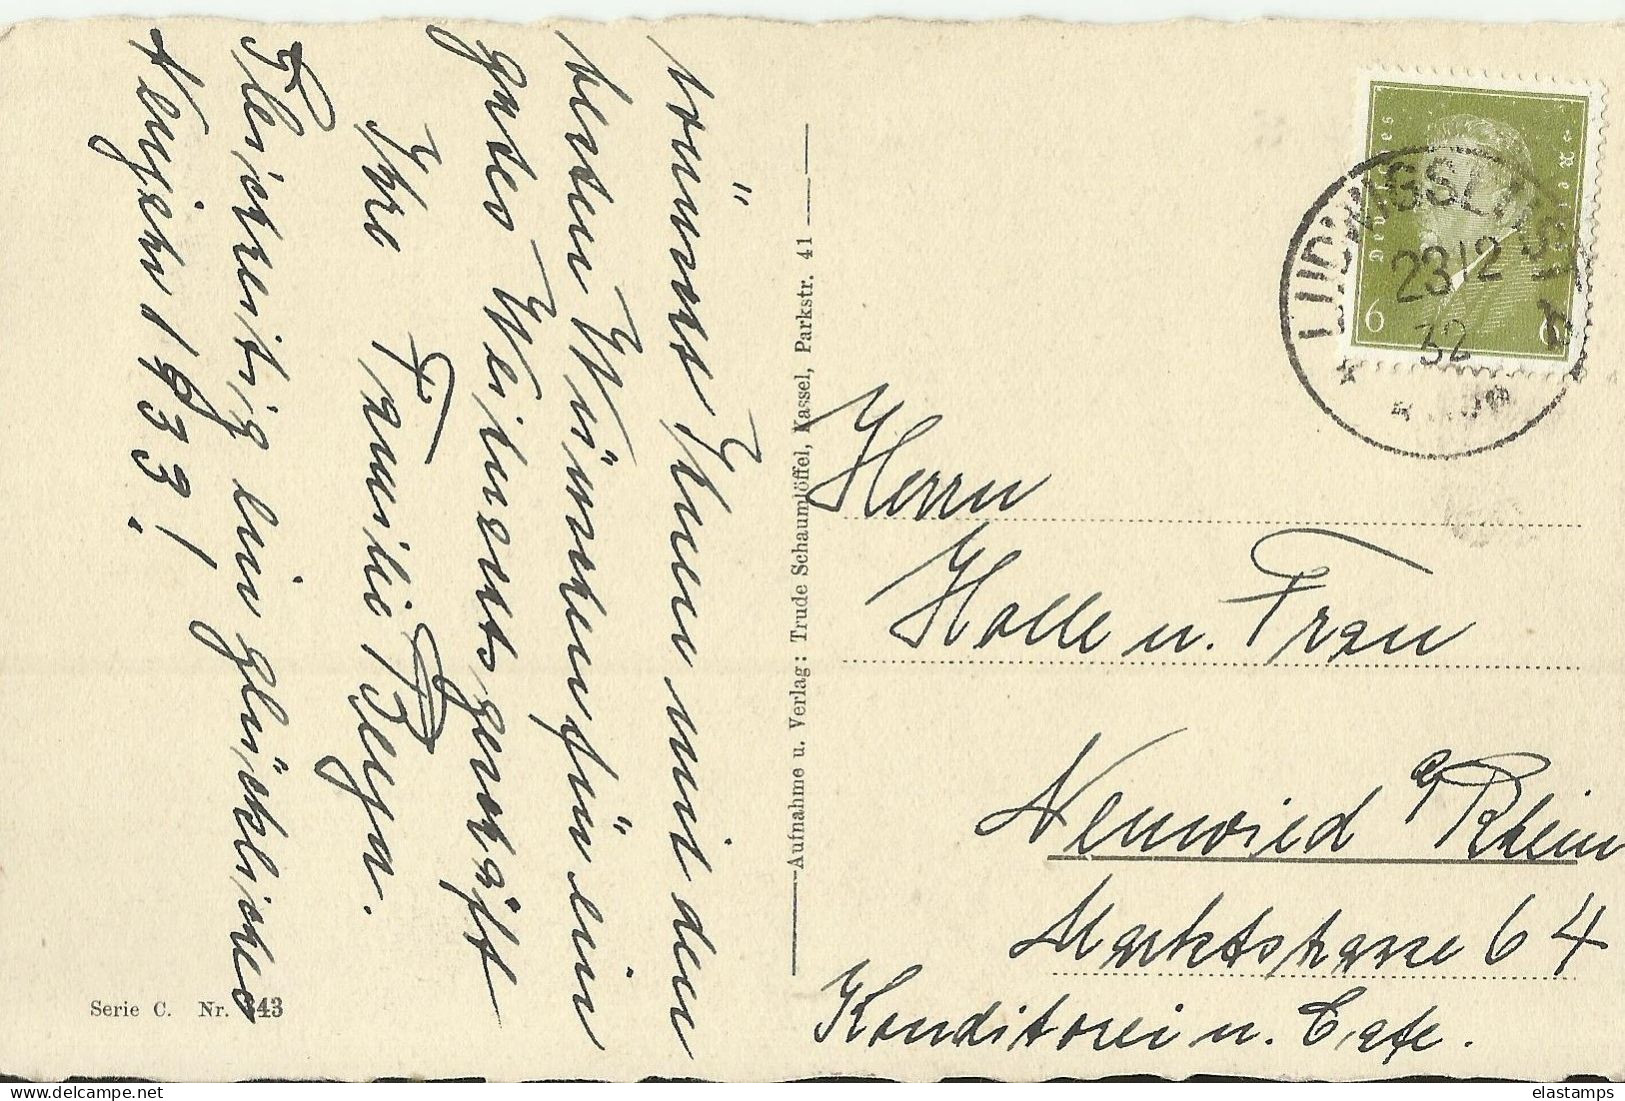 wünscht Ihnen mit den
besten Wünschen für ein
gutes Weihnachtsgeschäft
Ihre Familie
Gleichzeitig ein glückliches
Neujahr 1933!
Serie C. Nr. 343
Aufnahme u. Verlag: Trude Schaumlöffel, Kassel, Parkstr. 41
Deutsches Reich
6 6
LUDWIGSLUST
23 12
32
Herrn
Holle u. Frau
Neuwied a/Rhein
Marktstrasse 64
Konditorei u. Cafe.
elastamps